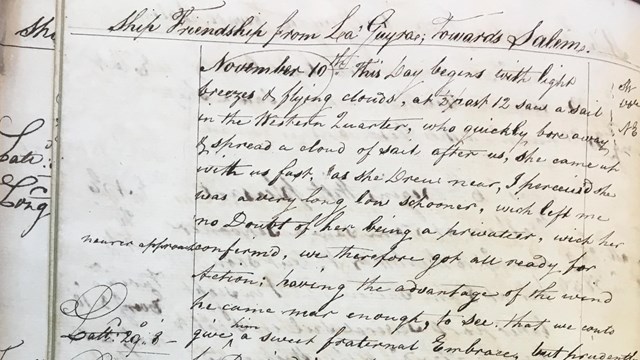 Ship Friendship from La Guyra; Towards Salem.
November 10th This Day begins with light
breezes & flying clouds, at past 12 saw a sail
in the Western Quarter, who quickly bore away
& spread a cloud of sail after us, she came up
with us fast, as she Drew near, I perceived she
was a very long low schooner, wich left me
no Doubt of her being a privateer, wich her
nearer approach confirmd, we therefore got all ready for
Action; having the advantage of the wind
he came near enough, to see that we could
Latt. 29° 8 - give him a sweet fraternal Embrace, but prudently
Latt.
Long